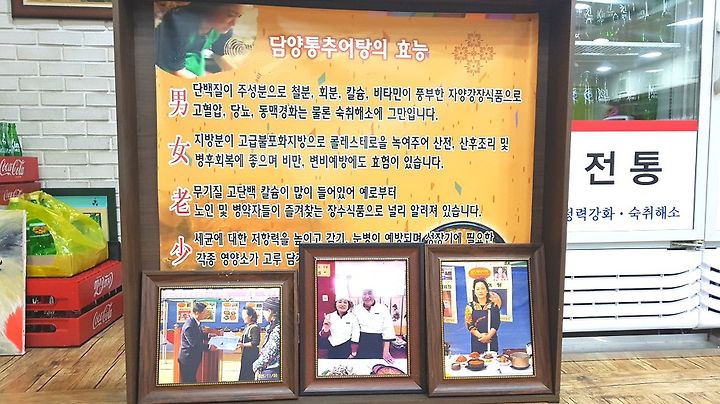 담양통추어탕의 효능
男 단백질이 주성분으로 철분, 회분, 칼슘, 비타민이 풍부한 자양강장식품으로
고혈압, 당뇨, 동맥경화는 물론 숙취해소에 그만입니다.
女 지방분이 고급불포화지방으로 콜레스테로을 녹여주어 산전, 산후조리 및
병후회복에 좋으며 비만, 변비예방에도 효험이 있습니다.
老 무기질 고단백 칼슘이 많이 들어있어 예로부터
노인 및 병약자들이 즐겨찾는 장수식품으로 널리 알려져 있습니다.
少 세균에 대한 저항력을 높이고 각기, 눈병이 예방되며 성장기에 필요한
각종 영양소가 고루 담겨
전통
정력강화 · 숙취해소
Coca-Cola
Coca-Cola
Coca-Cola